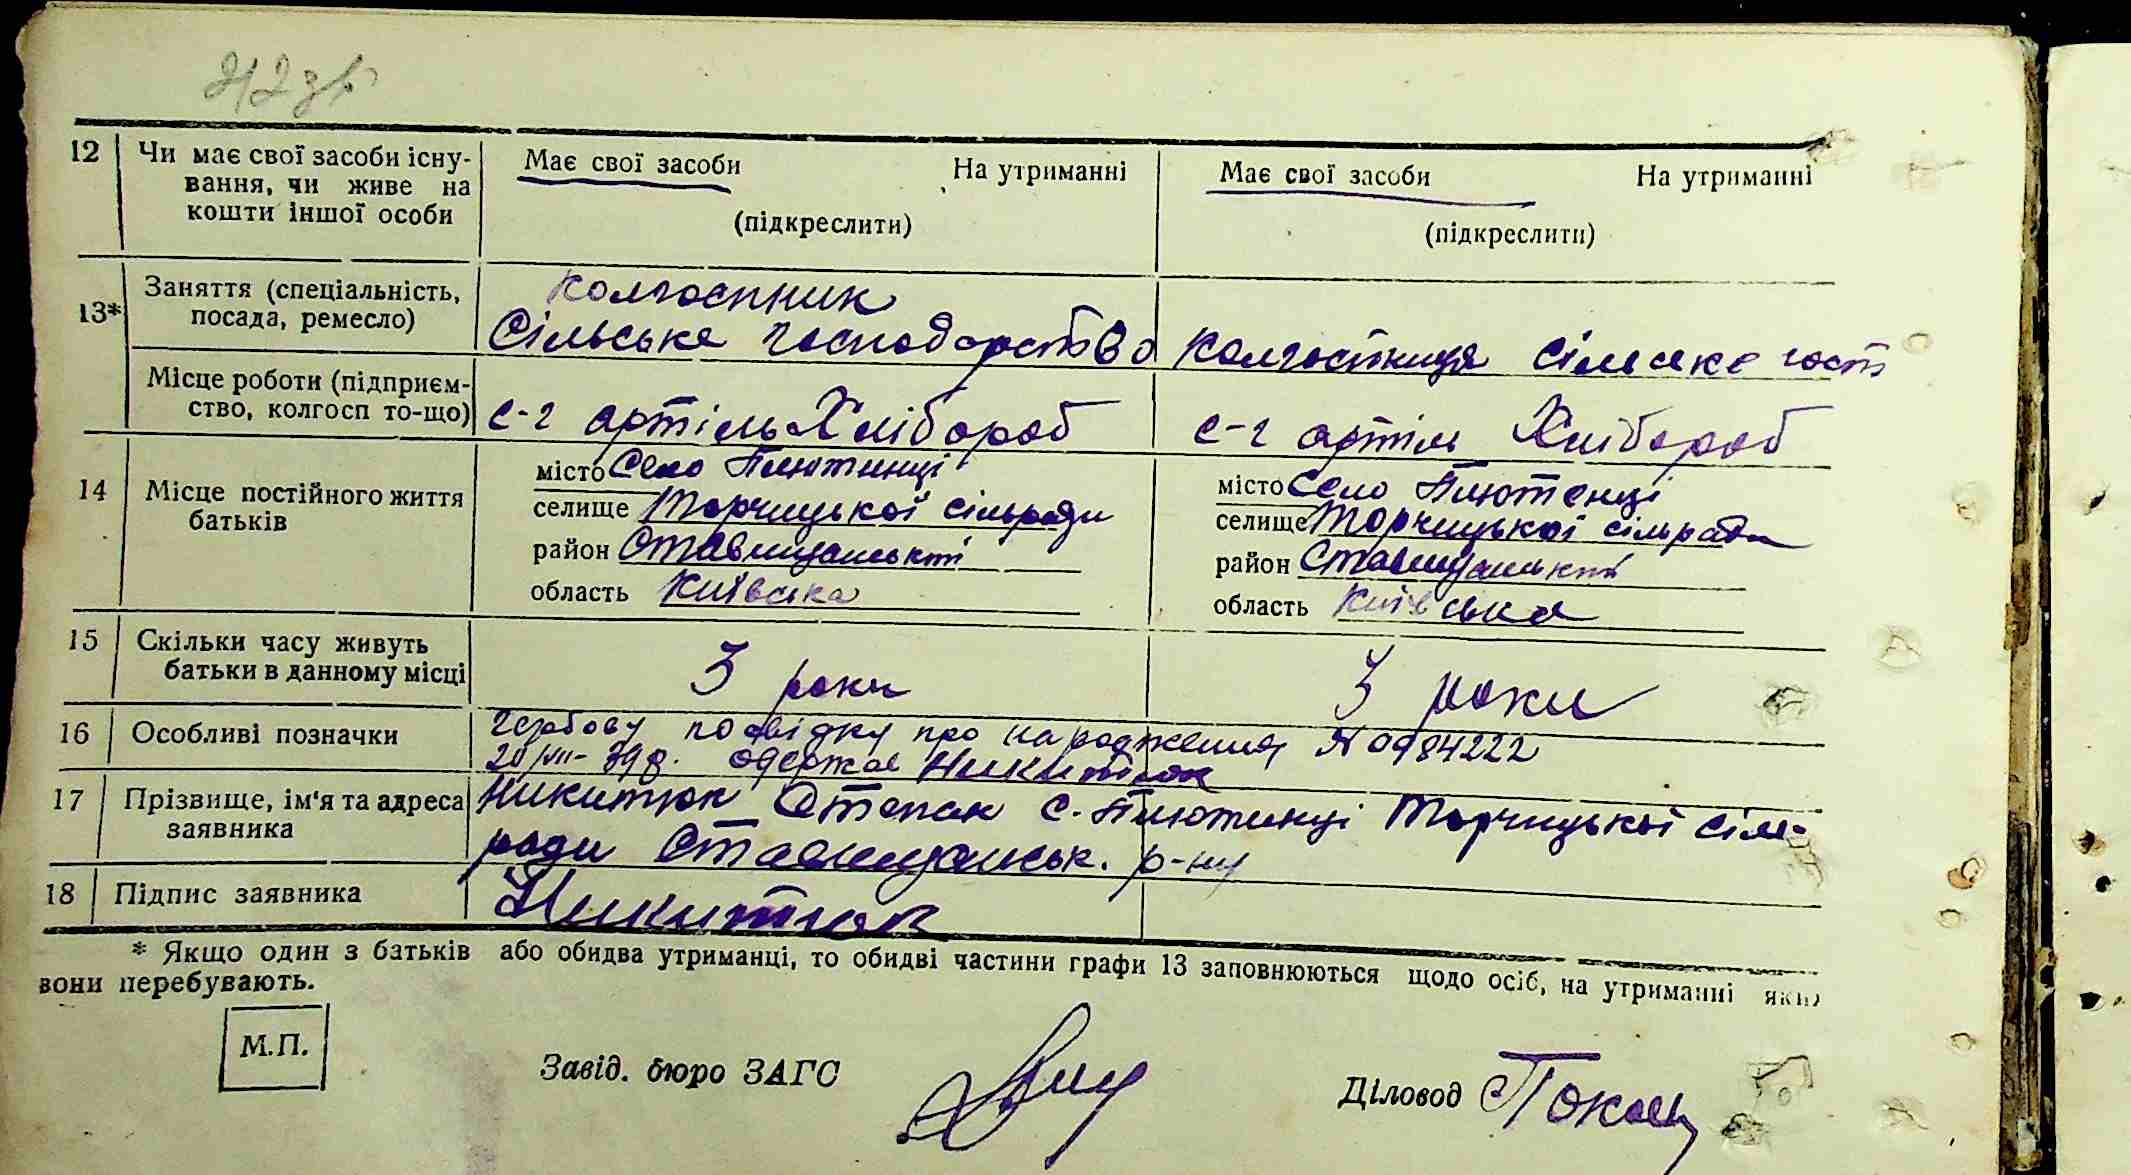 212 зв
12 Чи має свої засоби існу- Має свої засоби На утриманні Має свої засоби На утриманні
вання, чи живе на
кошти іншої особи (підкреслити) (підкреслити)
13* Заняття (спеціальність, Колгоспник
посада, ремесло) Сільське господарство Колгоспниця Сільське госп
Місце роботи (підприєм-
ство, колгосп то-що) с-г артіль Хлібороб с-г артіль Хлібороб
14 Місце постійного життя місто Село Плютинці місто Село Плютенці
батьків селище Торчицької сільради селище Торчицької сільради
район Ставищанський район Ставищанський
область Київська область Київська
15 Скільки часу живуть
батьки в данному місці 3 роки 3 роки
16 Особливі позначки Гербову посвідку про народження № 0984222
20/VII-39 р. одержав Никитюк
17 Прізвище, ім'я та адреса Никитюк Степан с. Плютинці Торчицької сіль-
заявника ради Ставищанськ. р-ну
18 Підпис заявника Никитюк
* Якщо один з батьків або обидва утриманці, то обидві частини графи 13 заповнюються щодо осіб, на утриманні яких
вони перебувають.
М.П.
Завід. бюро ЗАГС Діловод